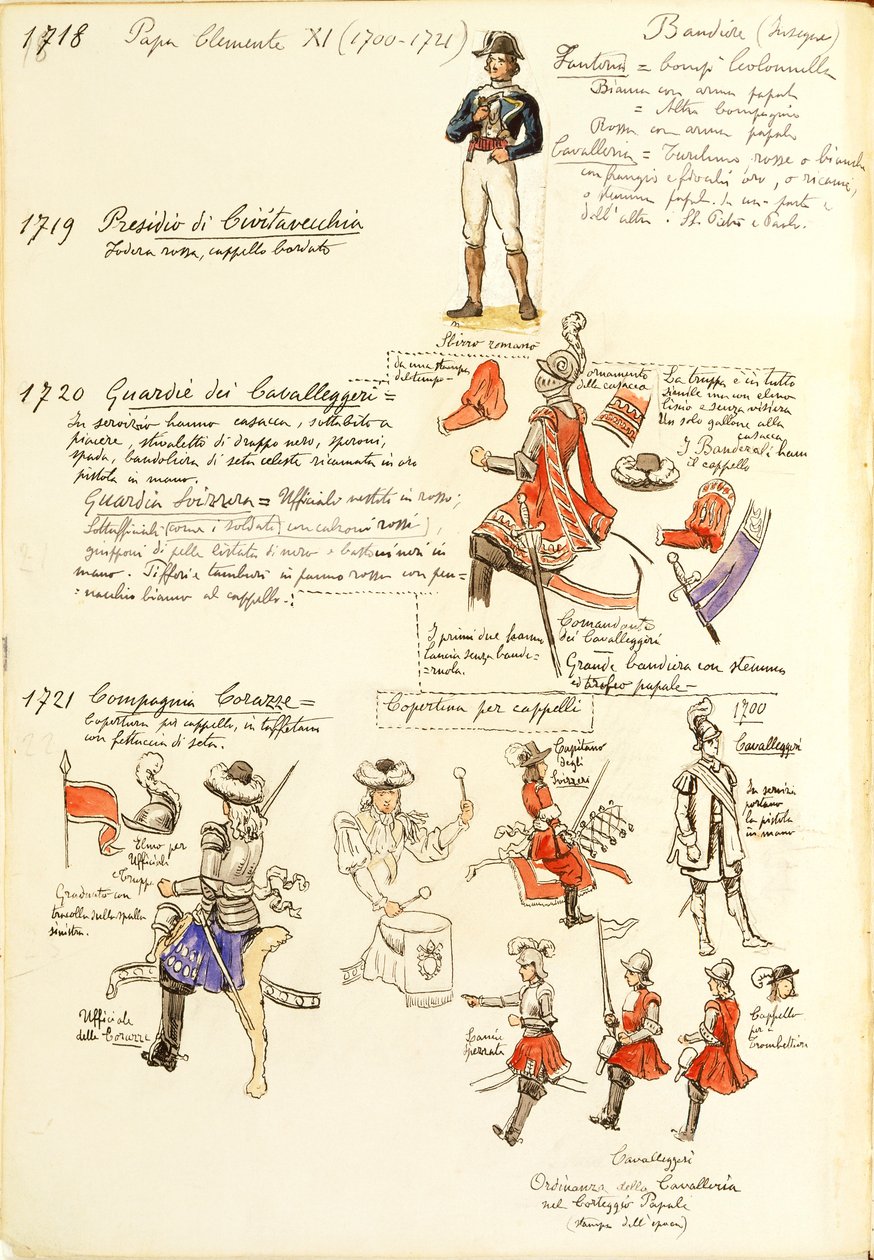 1718 Papa Clemente XI (1700-1721)
Bandiere (Insegne)
Fanteria = Comp. Colonnella
Bianca con arma papale
= Altra compagnia
Rossa con arma papale
Cavalleria = rosse o bianche
con frangia e fiocchi d'oro, o ricami,
o stemma papal. da una parte e
dall'altra SS. Pietro e Paolo.
1719 Presidio di Civitavecchia
Fodera rossa, cappello bordato
Sbirro romano
1720 Guardie dei Cavalleggeri =
In servizio hanno casacca, sottabito a
piacere, stivaletti di drappo nero, speroni,
spada, bandoliera di seta celeste ricamata in oro
pistola in mano.
Guardia Svizzera = Ufficiali vestiti in rosso;
Sottufficiali (come i soldati) con calzoni rossi,
giupponi di pelle listata di nero e bastoni neri in
mano. Tifferi e tamburi in panno rosso con pen=
=nacchio bianco al cappello -
da una stampa
del tempo -
ornamento
della casacca
La truppa è in tutto
simile ma con elmo
liscio e senza visiera
Un solo gallone alla
casacca
I Banderali hanno
il cappello
I primi due hanno
lancia senza bande-
-ruola.
Comandante
dei Cavalleggeri
Grande bandiera con stemma
ed trofeo papale -
1721 Compagnia Corazze =
Copertura per cappello, in taffetano
con fettuccia di seta.
Copertina per cappelli
1700
Cavalleggeri
In servizio
portano
la pistola
in mano
Capitano
degli
Svizzeri
Elmo per
Ufficiali
e Truppa
Graduato con
tracolla sulla spalla
sinistra.
Ufficiale
delle Corazze
Lancia
spezzata
Cappello
per
Trombettiere
Cavalleggeri
Ordinanza della Cavalleria
nel Corteggio Papale
(stampa dell'epoca)